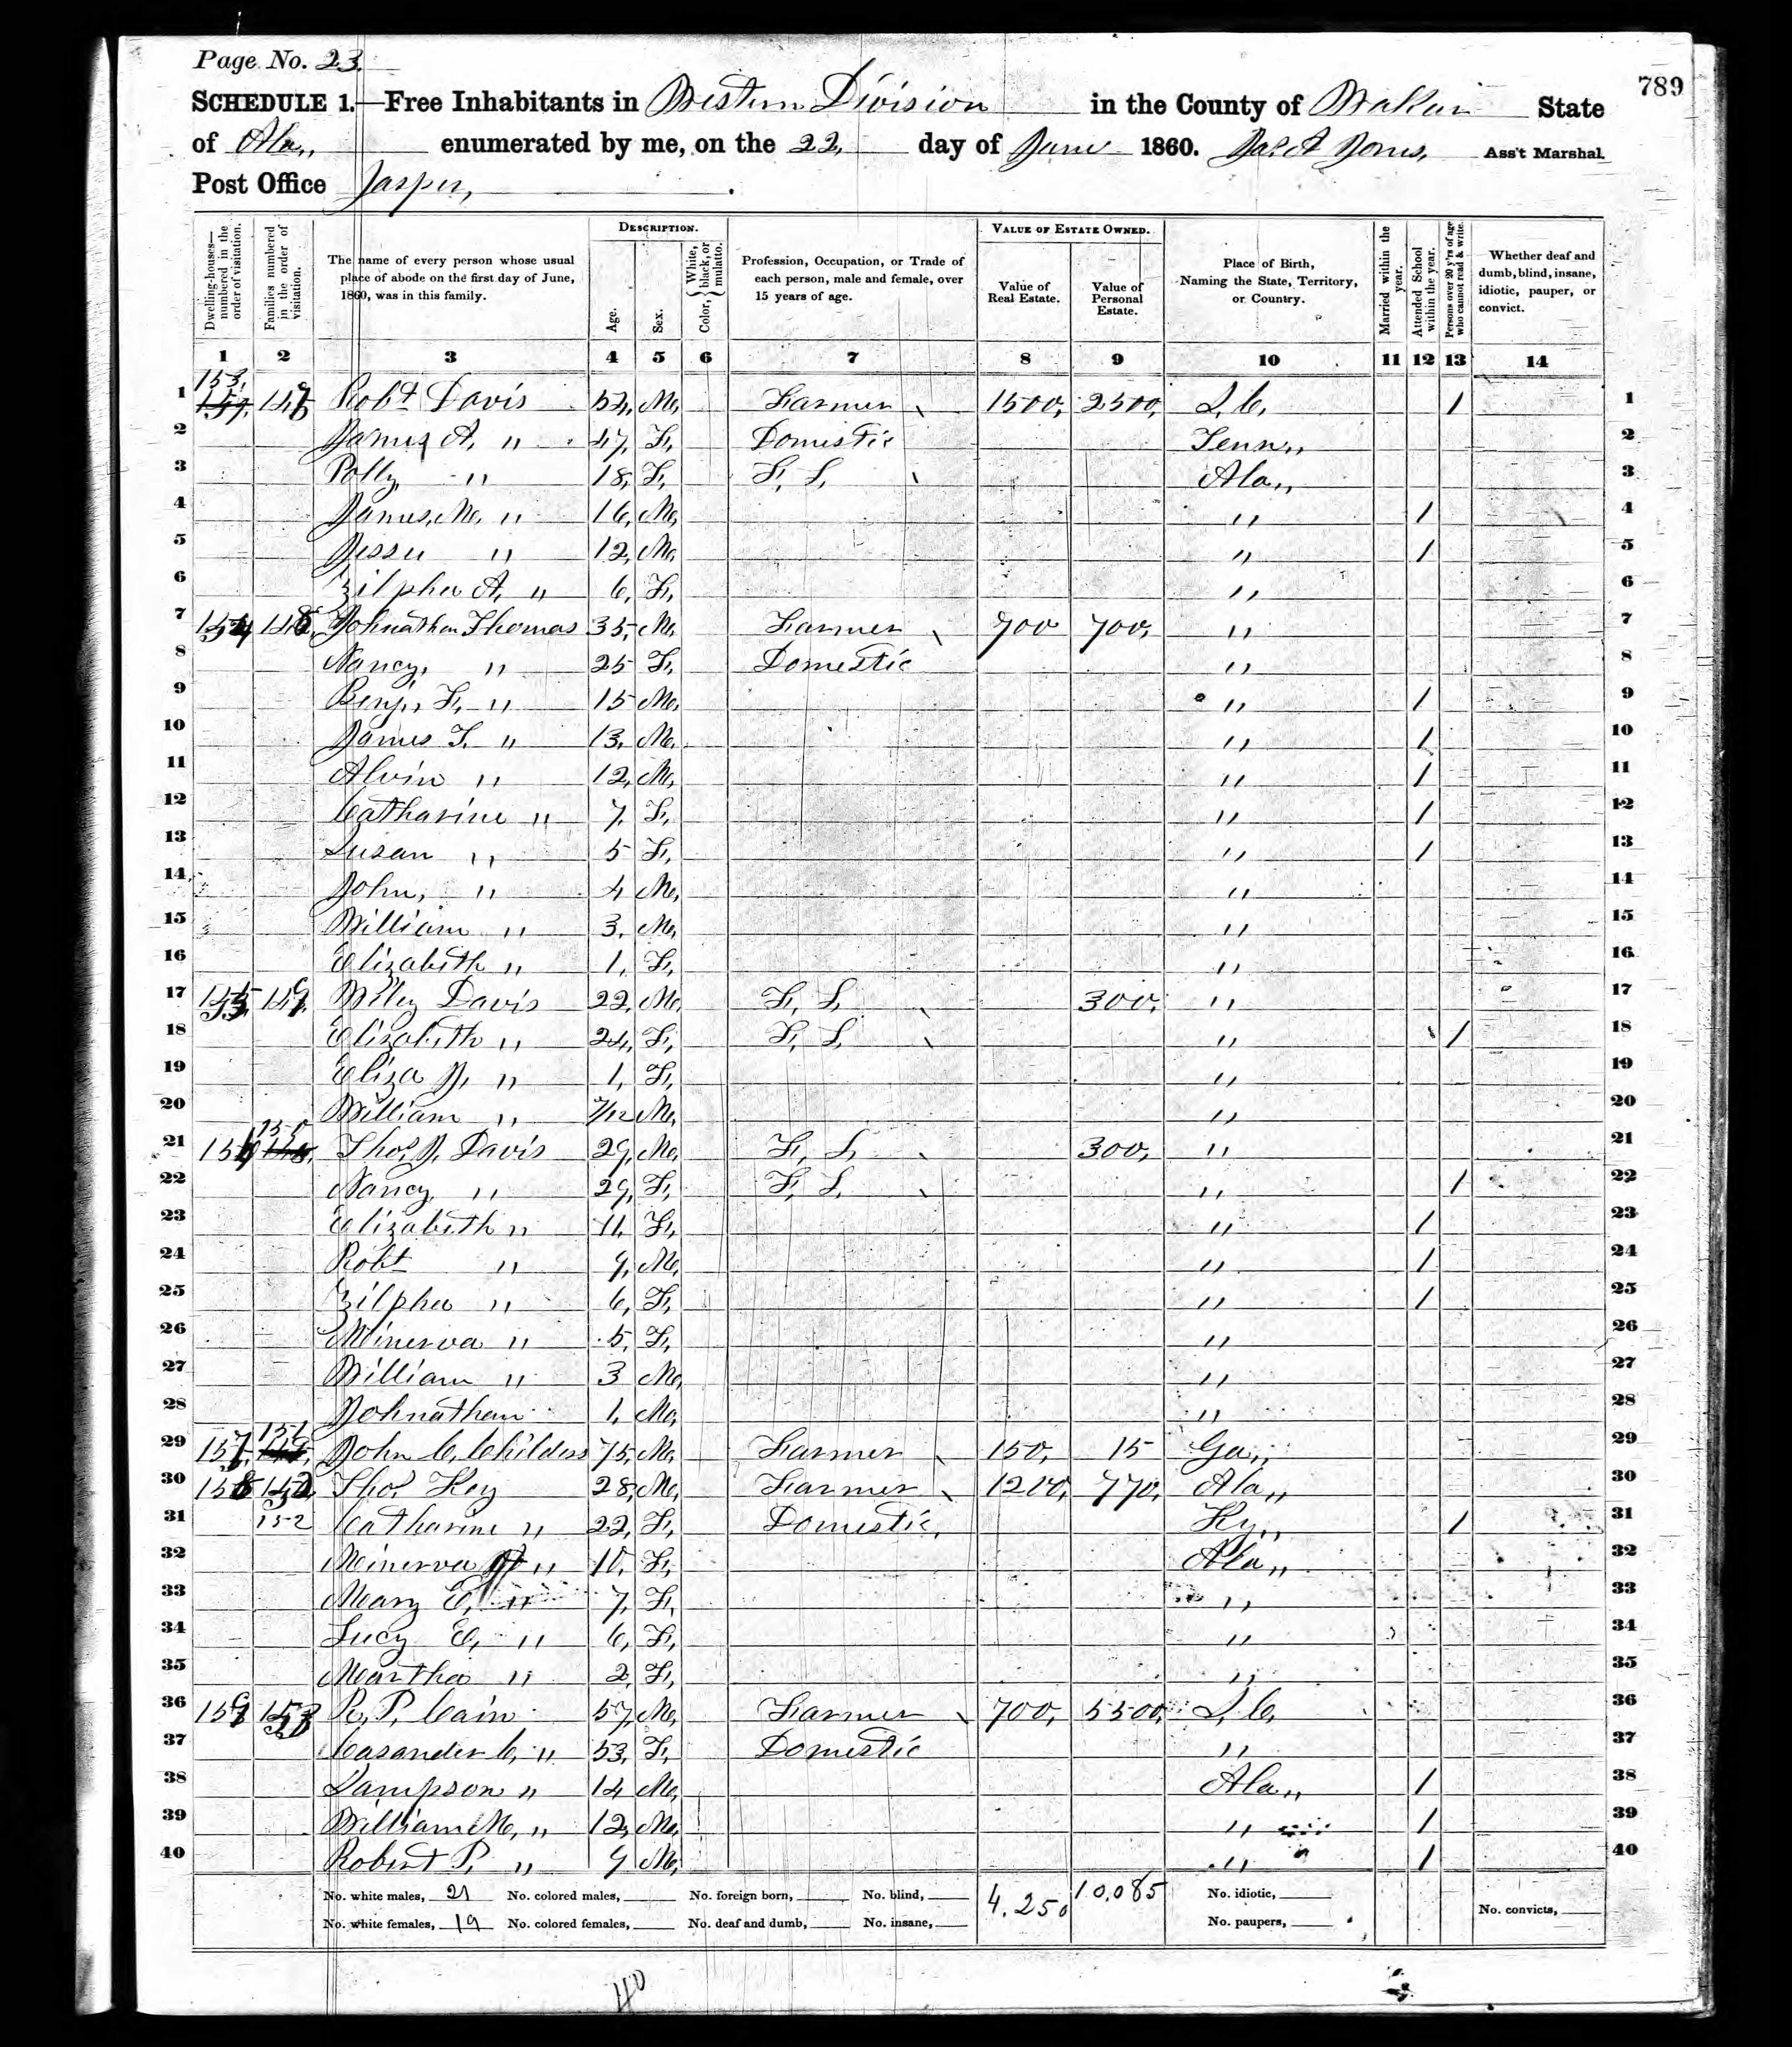 Page No. 23.
789
SCHEDULE 1.—Free Inhabitants in Western Division in the County of Walker State
of Ala,, enumerated by me, on the 22, day of June 1860. Jas. A Jones, Ass't Marshal.
Post Office Jasper, .
Dwelling-houses—numbered in the order of visitation.
Families numbered in the order of visitation.
The name of every person whose usual place of abode on the first day of June, 1860, was in this family.
DESCRIPTION.
Age.
Sex.
Color, { White, black, or mulatto.
Profession, Occupation, or Trade of each person, male and female, over 15 years of age.
VALUE OF ESTATE OWNED.
Value of Real Estate.
Value of Personal Estate.
Place of Birth, Naming the State, Territory, or Country.
Married within the year.
Attended School within the year.
Persons over 20 y'rs of age who cannot read & write.
Whether deaf and dumb, blind, insane, idiotic, pauper, or convict.
1 2 3 4 5 6 7 8 9 10 11 12 13 14
1 153, 147 Robt Davis 52, M, Farmer 1500, 2500, S. C, / 1
2 James A, " 47, F, Domestic Tenn,, 2
3 Polly " 18, F, F, L, Ala,, 3
4 James, M, " 16, M, " / 4
5 Jesse " 12, M, " / 5
6 Zilpha A, " 6, F, " 6
7 154 148 Johnathan Thomas 35, M, Farmer 700 700, " 7
8 Nancy, " 25 F, Domestic " 8
9 Benj, F, " 15 M, " / 9
10 James T. " 13, M, " / 10
11 Alvin " 12, M, " / 11
12 Catharine " 7, F, " / 12
13 Susan " 5 F, " / 13
14 John, " 4 M, " 14
15 William " 3, M, " 15
16 Elizabeth " 1, F, " 16
17 155, 149, Wiley Davis 22, M, F, L, 300, " 17
18 Elizabeth " 24, F, F, L, " / 18
19 Eliza J, " 1, F, " 19
20 William " 7/12 M, " 20
21 156 150 Thos J, Davis 29, M, F, L, 300, " 21
22 Nancy " 29, F, F, L, " / 22
23 Elizabeth " 11, F, " / 23
24 Robt " 9, M, " / 24
25 Zilpha " 6, F, " / 25
26 Minerva " 5, F, " 26
27 William " 3 M, " 27
28 Johnathan 1, M, " 28
29 157, 151 John C, Childers 75, M, Farmer 150, 15 Ga,, 29
30 158 152 Thos Key 28, M, Farmer 1200, 770, Ala,, 30
31 152 Catharine " 22, F, Domestic, Ky,, / 31
32 Minerva " 10, F, Ala,, 32
33 Mary E, " 7, F, " 33
34 Lucy E, " 6, F, " 34
35 Martha " 2, F, " 35
36 159 153 R, P, Cain 57, M, Farmer 700, 5500, S, C, 36
37 Casander C, " 53, F, Domestic " 37
38 Sampson " 14 M, Ala,, / 38
39 William M, " 12, M, " / 39
40 Robert P, " 9 M, " / 40
No. white males, 21 No. colored males, No. foreign born, No. blind, 4,250 10,085 No. idiotic,
No. white females, 19 No. colored females, No. deaf and dumb, No. insane, No. paupers, No. convicts,
40